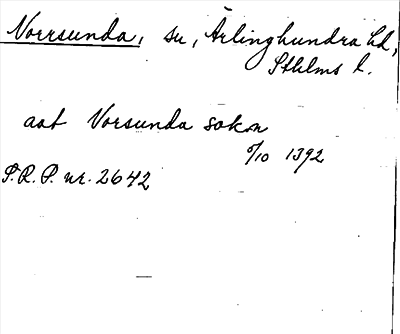 Norrsunda, sn, Ärlinghundra hd,
Sthlms l.
aat Norsunda sokn
6/10 1392
S.R.P. nr. 2642